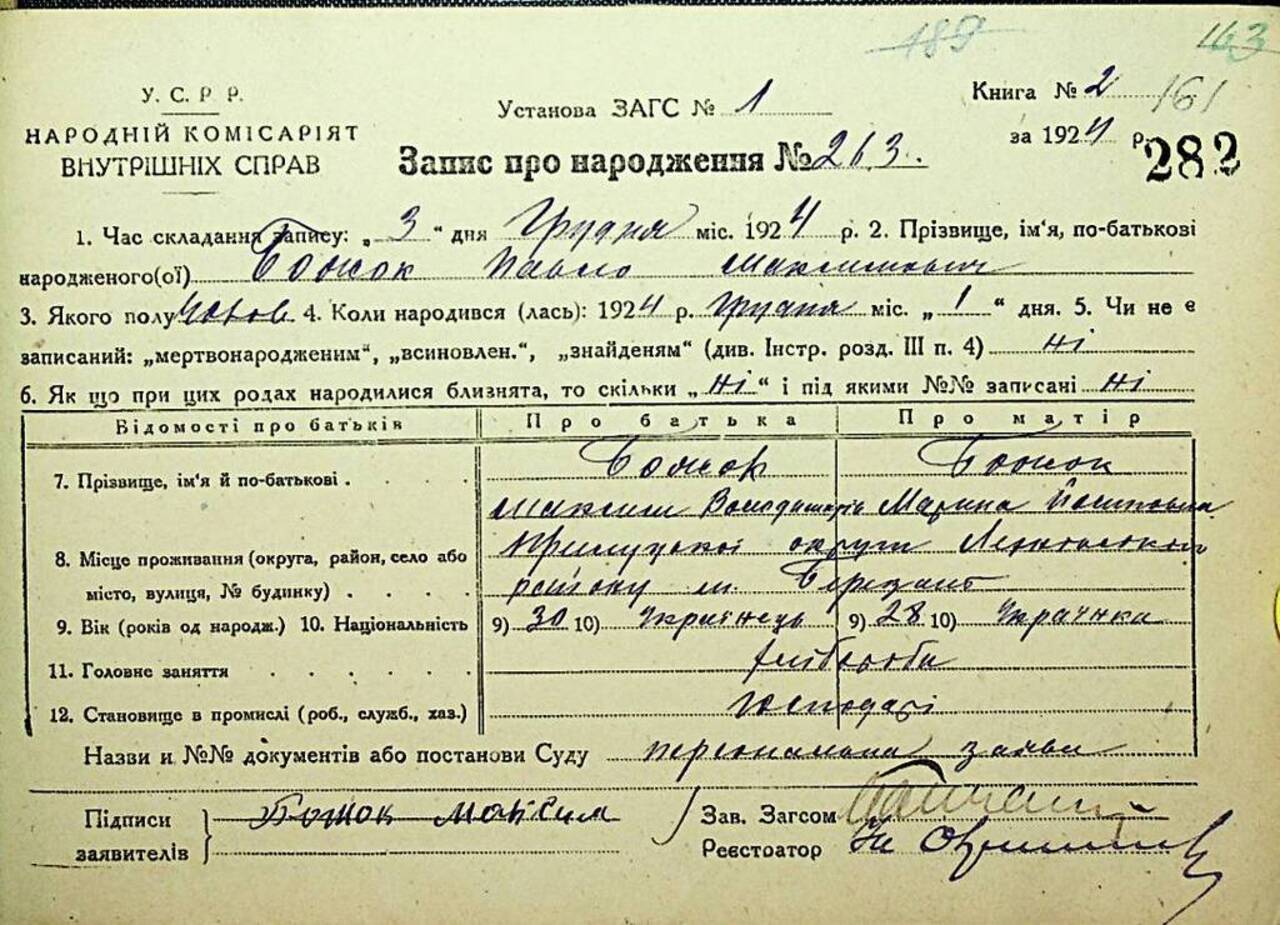 189 163
У. С. Р Р.
НАРОДНІЙ КОМІСАРІЯТ
ВНУТРІШНІХ СПРАВ
Установа ЗАГС № 1
Книга № 2 161
за 1924 р. 282
Запис про народження № 263.
1. Час складання запису: „3“ дня Грудня міс. 1924 р. 2. Прізвище, ім'я, по-батькові
народженого(ої) Божок Павло Максимович
3. Якого полу Чолов 4. Коли народився (лась): 1924 р. Грудня міс. „1“ дня. 5. Чи не є
записаний: „мертвонародженим“, „всиновлен.“, „знайденям“ (див. Інстр. розд. III п. 4) Ні
6. Як що при цих родах народилися близнята, то скільки „Ні“ і під якими №№ записані Ні
Відомості про батьків Про батька Про матір
7. Прізвище, ім'я й по-батькові . . . . Божок Божок
Максим Володимирів Марина Йосиповна
8. Місце проживання (округа, район, село або Прилуцької округи
місто, вулиця, № будинку) . . . . району м. Березань
9. Вік (років од народж.) 10. Національність 9) 30 10) Українець 9) 28 10) Українка
11. Головне заняття . . . . . . хлібороб
12. Становище в промислі (роб., служб., хаз.) господарі
Назви и №№ документів або постанови Суду персональна заява
Підписи Божок Максим Зав. Загсом
заявителів Реєстратор